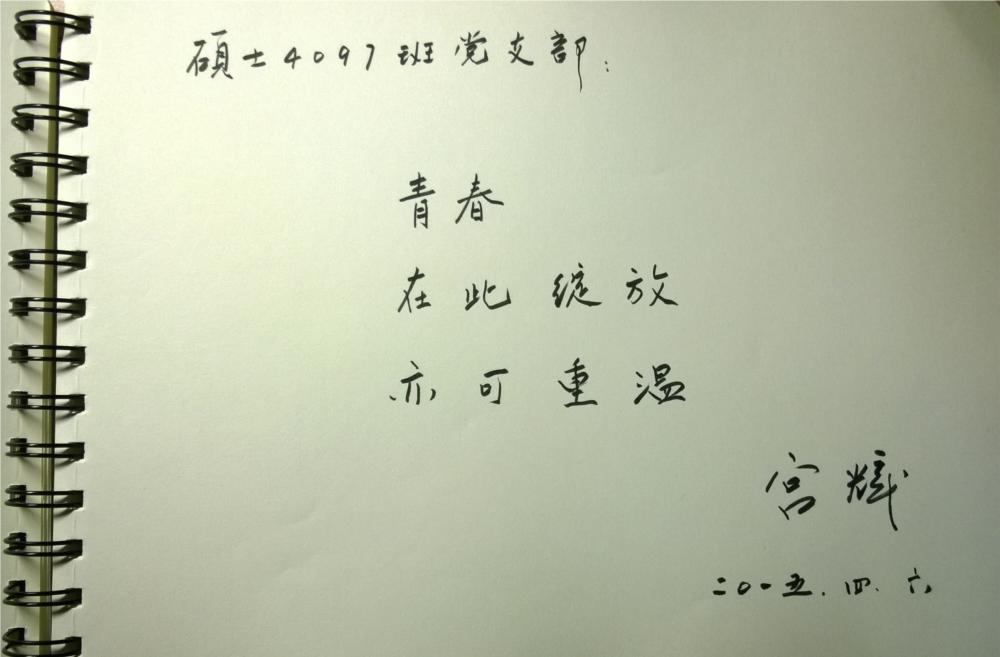 硕士4097班党支部:
青春
在此绽放
亦可重温
宫辉
二〇一五.四.六